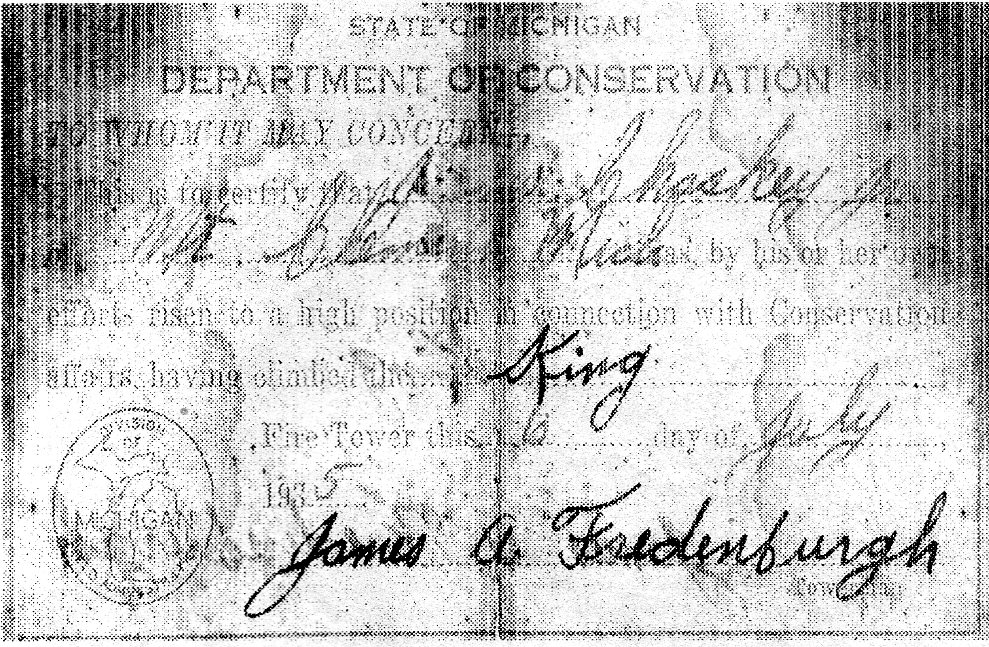 STATE OF MICHIGAN
DEPARTMENT OF CONSERVATION
TO WHOM IT MAY CONCERN:
This is to certify that Chaskey Jr
Mt Clemens Mich has, by his or her own
efforts risen to a high position in connection with Conservation
affairs, having climbed the King
Fire Tower this 6 day of July
1935
DIVISION OF
MICHIGAN
James A Fredenburgh
Towerman